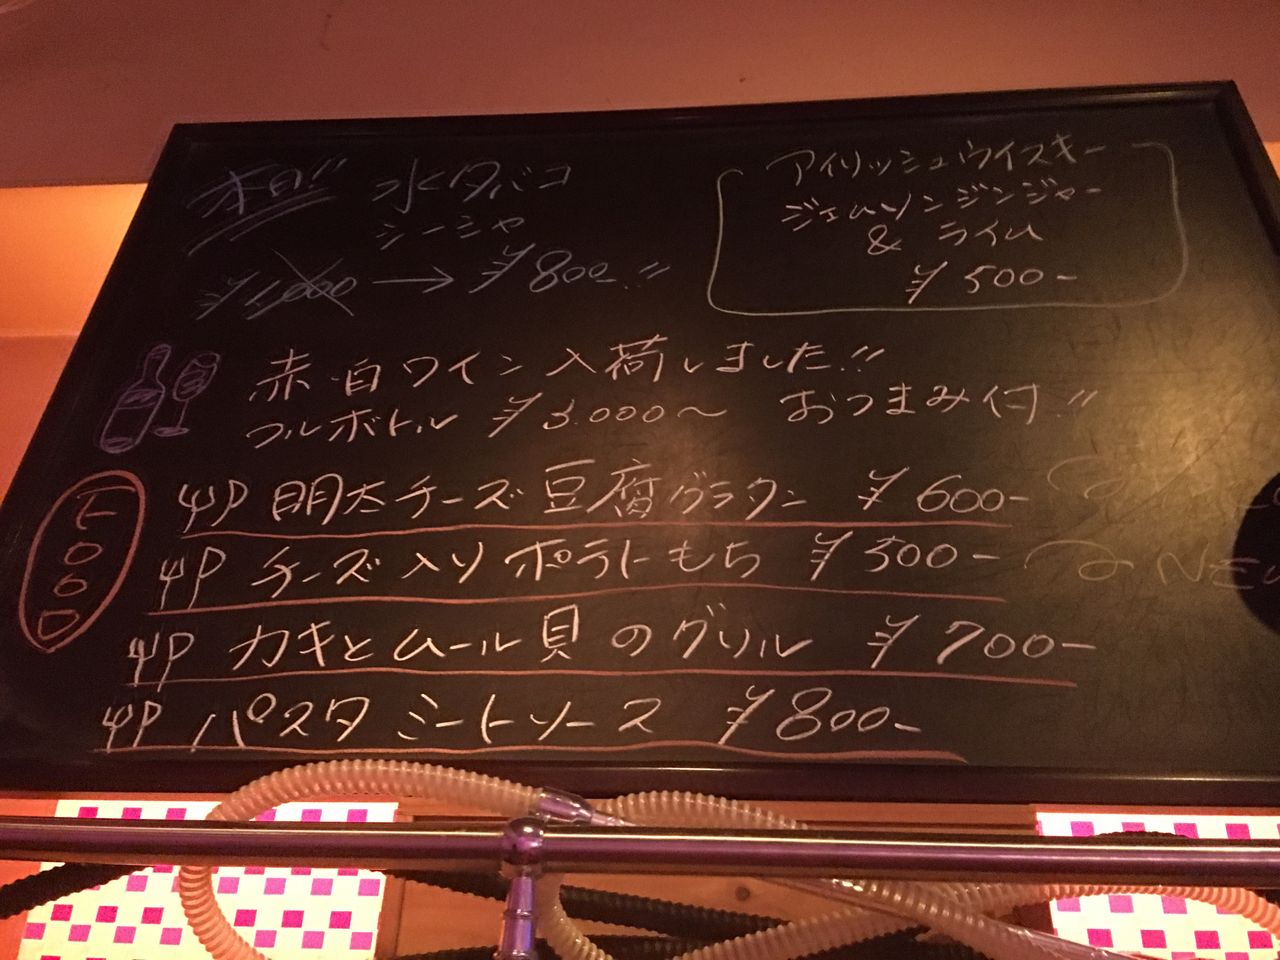 本日!!
水タバコ
シーシャ
¥1,000 → ¥800-!!
アイリッシュウイスキー
ジェムソンジンジャー
& ライム
¥500-
赤・白ワイン入荷しました!!
フルボトル ¥3.000〜 おつまみ付!!
FOOD
明太チーズ豆腐グラタン ¥600-
チーズ入りポテトもち ¥500-
カキとムール貝のグリル ¥700-
パスタ ミートソース ¥800-